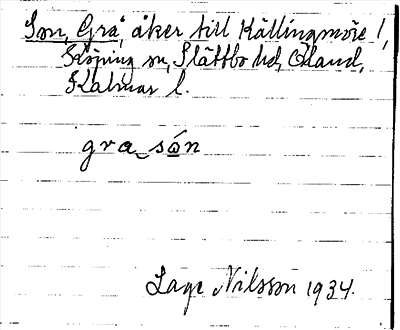 Son, Gra, åker till Källingmöre 1,
Köping sn, Slättbo hd, Öland,
Kalmar l.
gra_són
Lage Nilsson 1934.